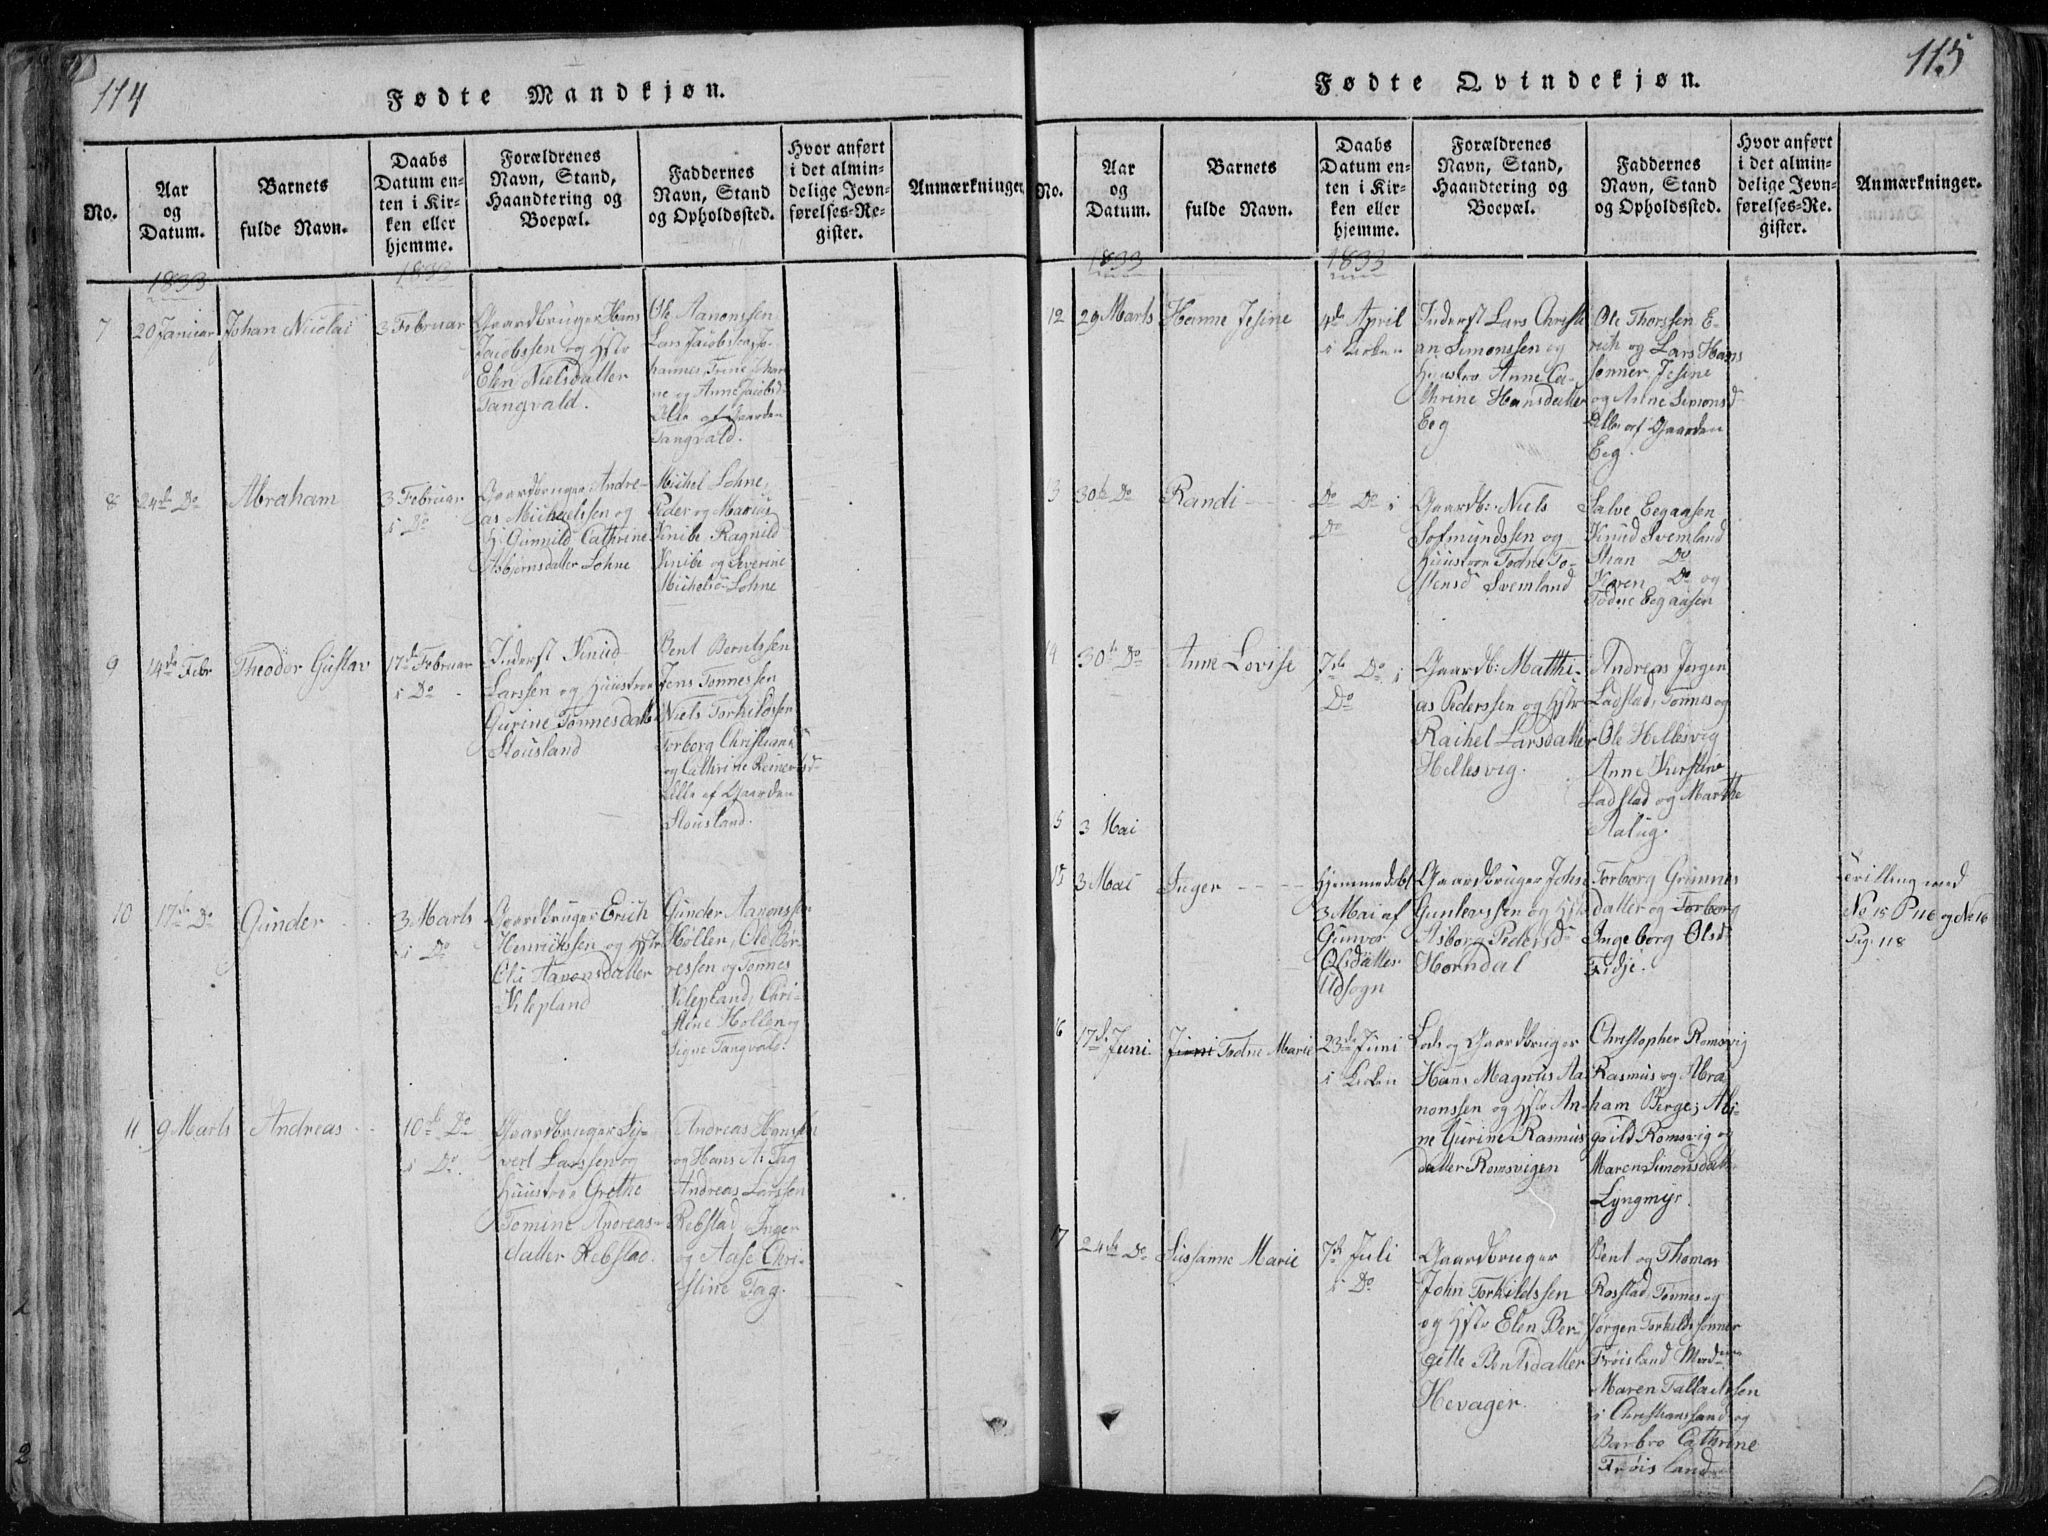 114
Fødte Mandkjøn.
No.
Aar
og
Datum.
Barnets
fulde Navn.
Daabs
Datum en-
ten i Kir-
ken eller
hjemme.
Forældrenes
Navn, Stand,
Haandtering og
Boepæl.
Faddernes
Navn, Stand
og Opholdssted.
Hvor anført
i det almin-
delige Jevn-
førelses-Re-
gister.
Anmærkninger.
1833
1833
7
20 Januar
Johan Nicolai
3 Februar
Gaardbruger Hans
Jacobssen og Hstr
Elen Nielsdatter
Tangvald.
Ole Aanonssen
Lars Jacobssen, Jo-
hannes, Trine, Johan
ne og Anne Jacobsd-
Alle af Gaarden
Tangvald.
8
24de Do
Abraham
3 Februar
i Do
Gaardbruger Andre-
as Michaelssen og
H. Gunnild Cathrine
Asbjørnsdatter Lohne
Michel Lohne,
Peder og Marius
Kinibe, Ragnild
Kinibe og Severine
Michelsd- Lohne
9
14de Febr
Theodor Gustav
17de Februar
i Do
Inderst Knud
Larssen og Huustroe
Gurine Tønnesdatt
Stousland
Bent Berntssen
Jens Tønnessen
Niels Torkildssen
Torborg Christiansd
og Cathrine Reinertsd-
Alle af Gaarden
Stousland.
10
17de Do
Gunder
3 Marts
i Do
Gaardbruger Erich
Henrichssen og Hstr
Ole Aanonsdatter
Kilepland
Gunder Aanonssen
Høllen, Ole Ber-
ressen og Tønnes
Kilepland, Chri-
stine Høllen og
Signe Tangvald.
11
9 Marts
Andreas
10de Do
i Do
Gaardbruger Sy-
vert Larssen og
Huustroe Grethe
Tomine Andreas-
datter Rebstad.
Andreas Hanssen
og Hans A. Tag
Andreas Larssen
Rebstad, Inger
og Aase Chri-
stine Tag.
115
Fødte Qvindekjøn.
No.
Aar
og
Datum.
Barnets
fulde Navn.
Daabs
Datum en-
ten i Kir-
ken eller
hjemme.
Forældrenes
Navn, Stand,
Haandtering og
Boepæl.
Faddernes
Navn, Stand,
og Opholdssted.
Hvor anført
i det almin-
delige Jevn-
førelses-Re-
gister.
Anmærkninger.
1833
1833
12
29 Marts
Hanne Jesine
4de April
i Kirken
Inderst Lars Christi
an Simonssen og
Huustroe Anne Ca-
thrine Hansdatter
Eeg
Ole Thorssen E-
rich og Lars Hans
sønner, Jesine
og Anne Simonsd
Alle af Gaarden
Eeg.
3
30te Do
Randi
Do Do i
Do
Gaardb: Niels
Sofmundssen og
Huustroe Todne To-
stensd Svemland
Salve Eegaasen
Knud Svemland
Stian Do
Karen Do og
Todne Eegaasen
14
30te Do
Anne Lovise
7de Do i
Do
Gaardb: Matthi-
as Pederssen og Hstr
Rachel Larsdatter
Hellesvig.
Andreas Jørgen
Ladstad, Tønnes og
Ole Hellesvig
Anne Kirstine
Ladstad og Marthe
Aalug.
5
3 Mai
15
3 Mai
Inger
Hjemmedøbt
3 Mai af
Gunvor
Olsdatter
Udsogn
Gaardbruger John
Gunlevssen og Hstr
Asborg Pedersd-
Horndal
Torborg Grunnes
datter og Torborg
Ingeborg Olsd-
Fidje.
Tvilling med
No 15 P 116 og No 16
Pag. 118
16
17de Juni.
Juni Todne Marie
23de Juni
i Kirken
Lods og Gaardbruger
Hans Magnus Aa
nonssen og Hstr An-
ne Gurine Rasmus
datter Romsvigen
Christopher Romsvig
Rasmus og Abra
ham Berge, Abi-
gaild Romsvig og
Maren Simonsdatt
Lyngmyr.
17
24de Do
Sussanne Marie
7de Juli
i Do
Gaardbruger
John Torkildssen
og Hstr Elen Ber-
gitte Bentsdatter
Hevager
Bent og Thomas
Rosstad, Tønnes og
Jørgen Torkildssønner
Frøisland Mad
Maren Tallachsen
i Christianssand og
Barbro Cathrine
Frøisland